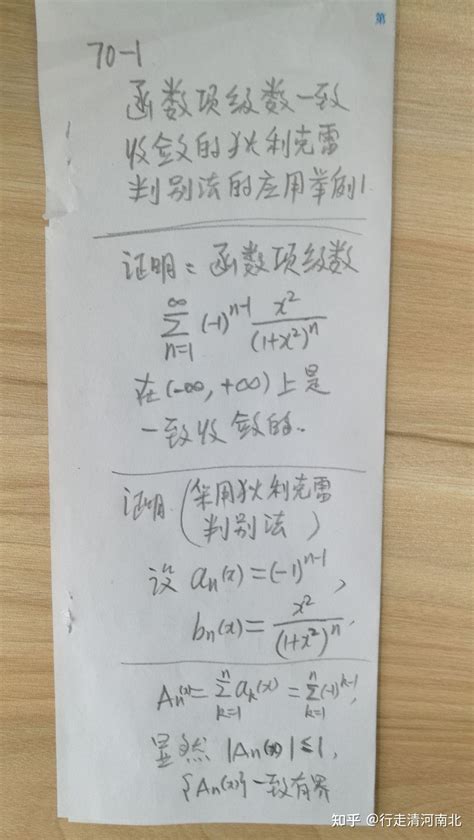 第
70-1
函数项级数一致
收敛的狄利克雷
判别法的应用举例1.
证明：函数项级数
∑_{n=1}^{∞} (-1)^{n-1} x²/(1+x²)^n
在(-∞, +∞)上是
一致收敛的.
证明.(采用狄利克雷
判别法)
设 aₙ(x)=(-1)^{n-1},
bₙ(x)= x²/(1+x²)^n.
Aₙ(x)=∑_{k=1}^{n} aₖ(x)=∑_{k=1}^{n}(-1)^{k-1},
显然 |Aₙ(x)|≤1,
{Aₙ(x)}一致有界
知乎 @行走清河南北